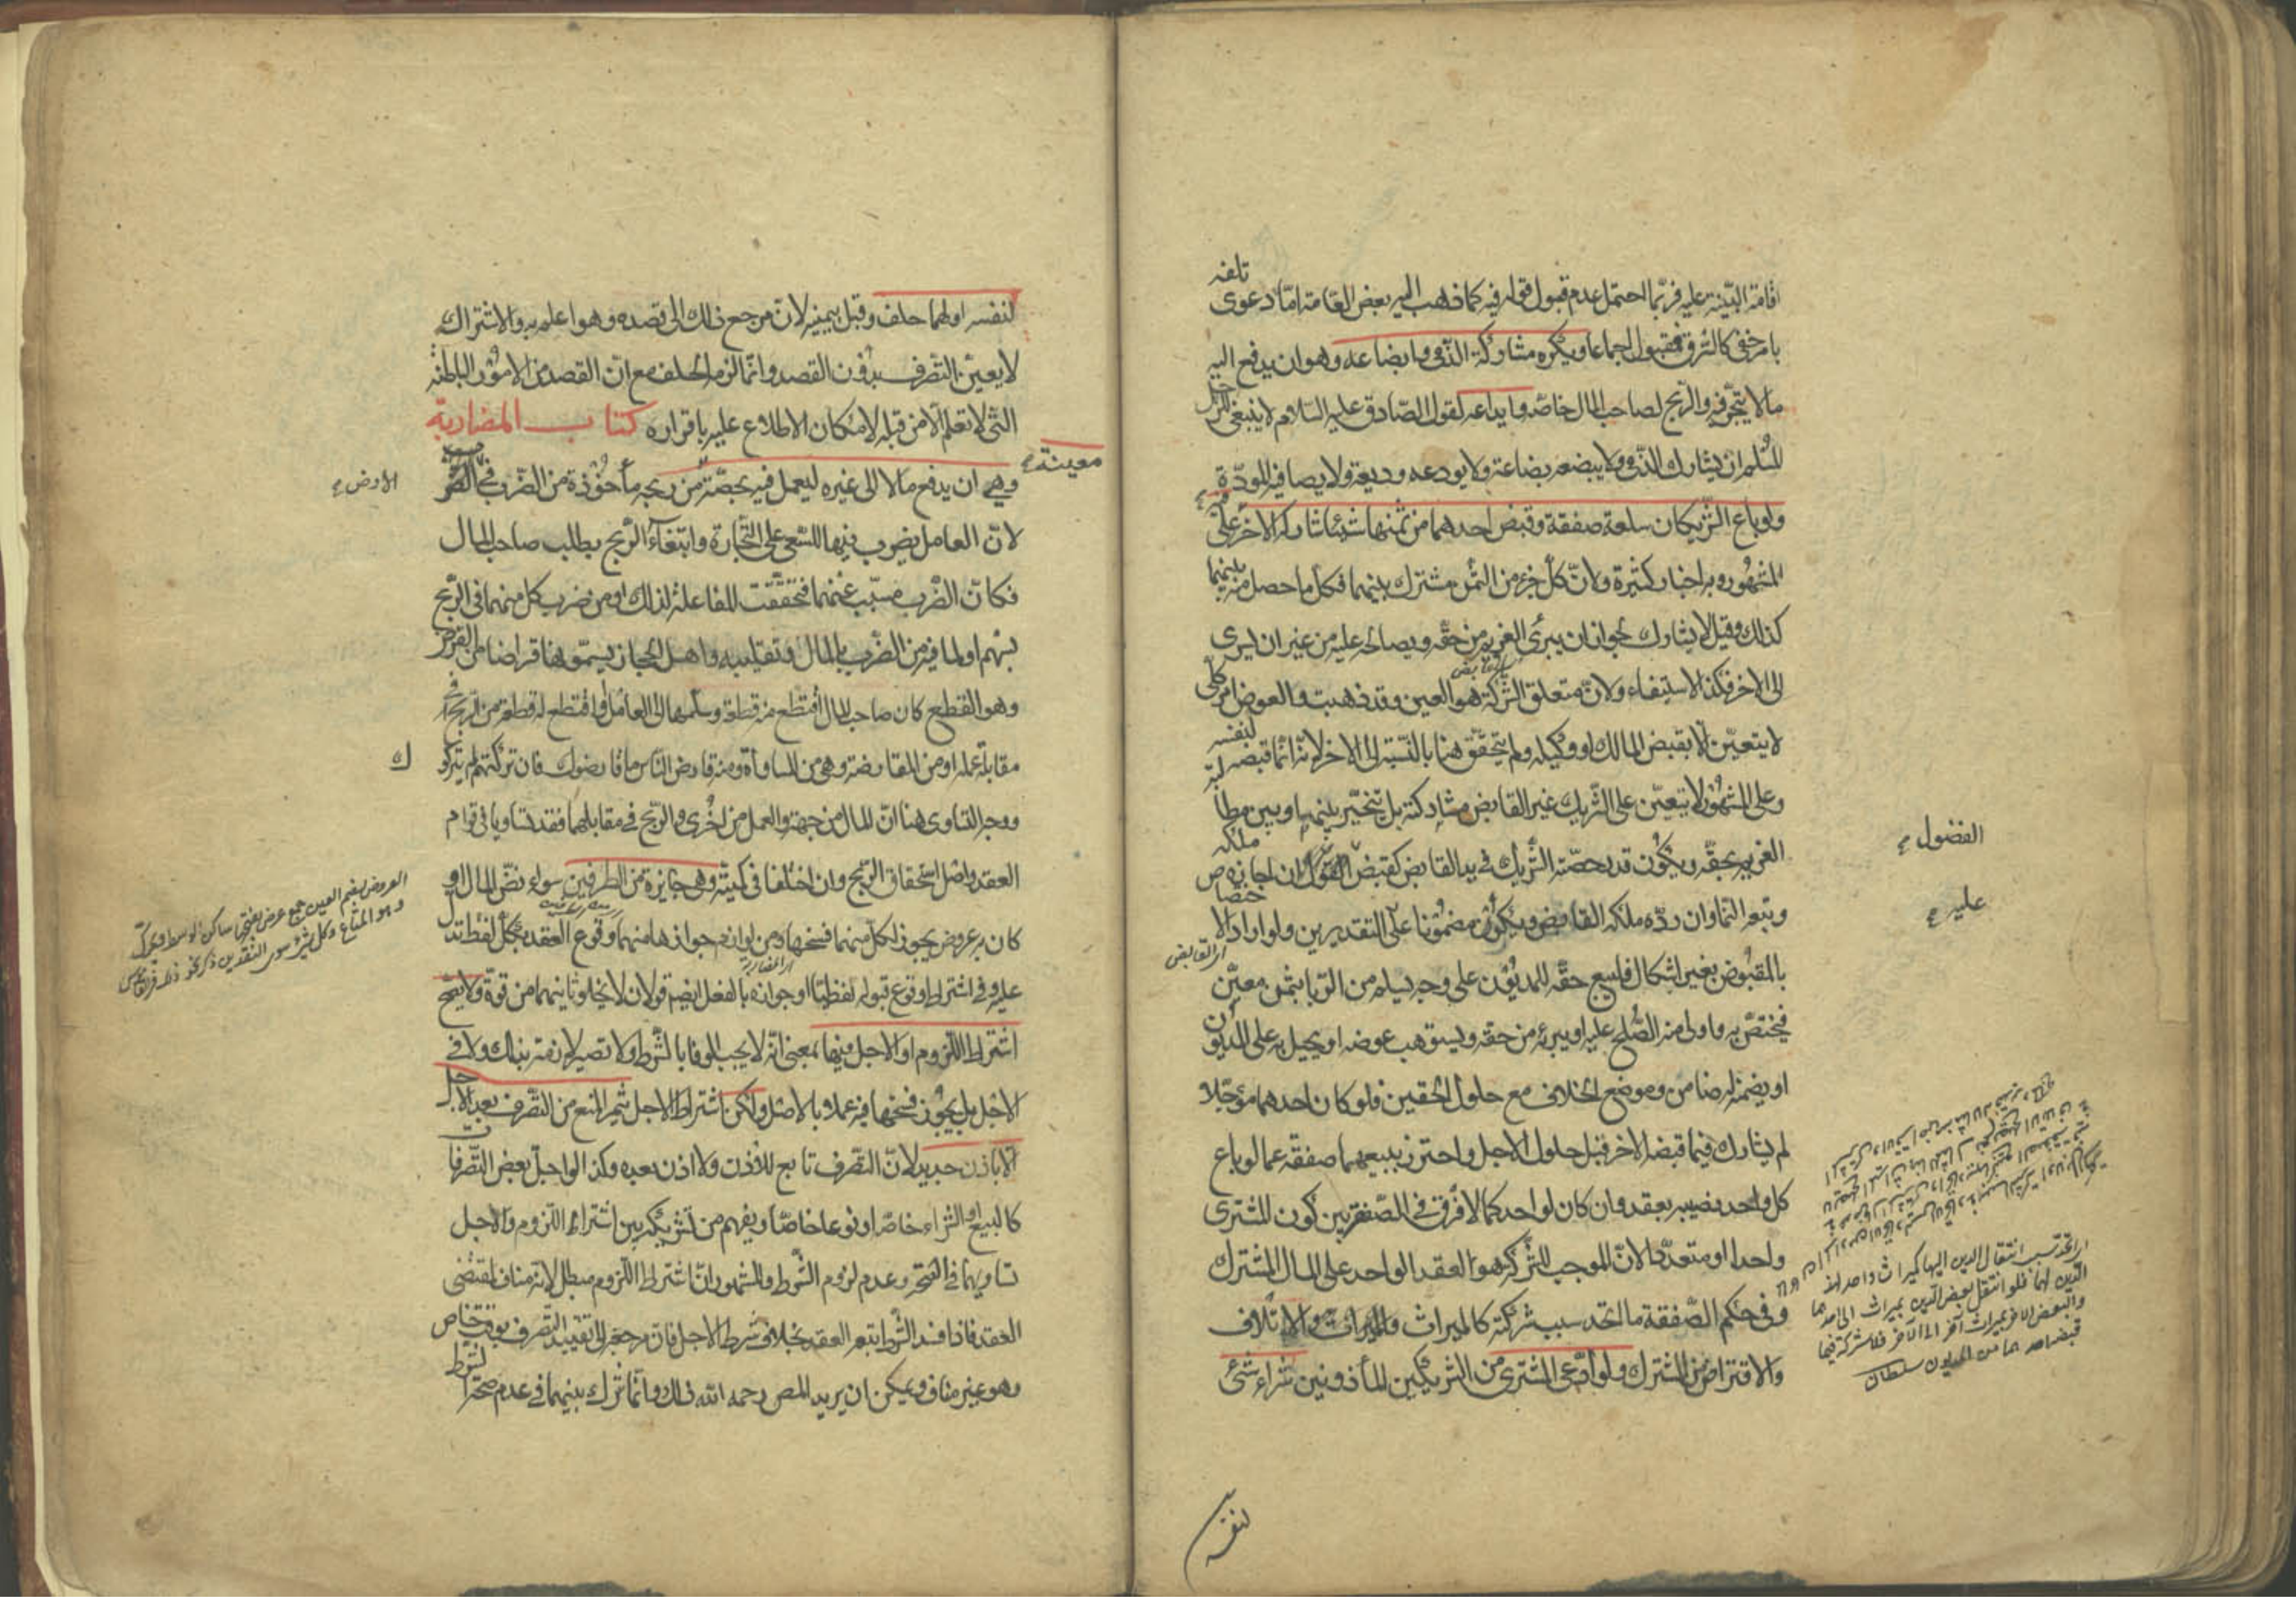 اقامة البيّنة عليه فربّما احتمل عدم قبول قوله فيه كما ذهب اليه بعض العامة امّا دعوى تلفه
بامر خفى كالسّرق فمقبول اجماعا ويكره مشاركة الذّمى وابضاعه وهو ان يدفع اليه
مالا يتّجر فيه والرّبح لصاحب المال خاصّة وايداعه لقول الصّادق عليه السّلام لا ينبغى للرّجل
المسلم ان يشارك الذّمى ولا يبضعه بضاعة ولا يودعه وديعة ولا يصافيه المودّة
ولو باع الشّريكان سلعة صفقة وقبض احدهما من ثمنها شيئا شاركه الاخر فيه على
المشهور وبه اخبار كثيرة ولانّ كل جزء من الثمن مشترك بينهما فكل ما حصل منه بينهما
كذلك وقيل لا يشارك لجواز ان يبرئ الغريم من حقّه ويصالحه عليه من غير ان يسرى
الى الاخر فكذا الاستيفاء ولانّ متعلق الشّركة هو العين وقد ذهبت والعوض امر كلى
لا يتعيّن الا بقبض المالك او وكيله ولم يتحقّق هنا بالنّسبة الى الاخر لانّه انّما قبضه لنفسه
وعلى المشهور لا يتعيّن على الشّريك غير القابض مشاركته بل يتخيّر بينها وبين مطالبة
الغريم بحقّه ويكون قدر حصّة الشّريك فى يد القابض كقبض الفضول ان اجازه ملكه
وتبعه النماء وان ردّه ملكه القابض ويكون مضمونا عليه على التقديرين ولو اراد الاختصاص
بالمقبوض بغير اشكال فليبع حقّه للمديون على وجه يسلم من الرّبا بثمن معيّن
فيختصّ به واولى منه الصّلح عليه او يبرئه من حقه ويستوهب عوضه او يحيل به على المديون
او يضمنه له ضامن وموضع الخلاف مع حلول الحقين فلو كان احدهما مؤجّلا
لم يشارك فيما قبضه الاخر قبل حلول الاجل واحترز ببيعهما صفقة عما لو باع
كل واحد نصيبه بعقد وان كان لواحد كما لا فرق فى الصّفقة بين كون المشترى
واحدا او متعدّدا لانّ الموجب للشّركة هو العقد الواحد على المال المشترك
وفى حكم الصّفقة ما اتّحد سبب شركته كالميراث والاتلاف
والاقتراض من المشترك ولو ادّعى المشترى من الشريكين المأذونين شراء شئ
الفضول
عليه
اى القابض
اى اتحد سبب انتقال الدين اليها كميراث واحد
الدين لهما فلو انتقل بعض الدين بميراث الى احدهما
والبعض الاخر بميراث آخر الى الآخر فلا شركة فيما
قبض احدهما من المديون سلطان
لنفسه
لنفسه او لهما حلف وقبل بيمينه لانّ مرجع ذلك الى قصده وهو اعلم به والاشتراك
لا يعيّن التصرف بدون القصد وانّما لزمه الحلف مع انّ القصد من الامور الباطنة
التى لا تعلم الا من قبله لامكان الاطلاع عليه باقراره كتاب المضاربة
وهى ان يدفع مالا الى غيره ليعمل فيه بحصّة من ربحه مأخوذة من الضّرب فى
لانّ العامل يضرب فيها للسّعى على التّجارة وابتغاء الرّبح بطلب صاحب المال
فكانّ الضّرب مسبّب عنهما فتحقّقت المفاعلة لذلك او من ضرب كل منهما فى الرّبح
بسهم او لما فيه من الضّرب بالمال وتقليبه واهل الحجاز يسمّونها قراضا من القرض
وهو القطع كان صاحب المال اقتطع منه قطعة وسلّمها الى العامل او اقتطع له قطعة من الرّبح فى
مقابلة عمله او من المقارضة وهى من المساوأة ومنه قارض النّاس ما قارضوك فان تركتهم لم يتركوك
ووجه التّساوى هنا انّ المال من جهة والعمل من اخرى والرّبح فى مقابلهما فقد تساويا فى قوام
العقد واصل استحقاق الرّبح وان اختلفا فى كميته وهى جايزة من الطرفين سواء نضّ المال او
كان به عروض يجوز لكلّ منهما فسخها ومن لوازم جوازها منهما وقوع العقد بكل لفظ تدل
عليه وفى اشتراط وقوع قبوله لفظيّا او جوازه بالفعل ايضم قولان لا يخلو ثانيهما من قوة ولا يصحّ
اشتراط اللّزوم او الاجل فيها بمعنى انّه لا يجب الوفا بالشّرط ولا تصير لازمة بذلك ولا فى
الاجل بل يجوز فسخها فيه عملا بالاصل ولكن اشتراط الاجل يثمر المنع من التصرف بعد الاجل
الا باذن جديد لانّ التصرف تابع للاذن ولا اذن بعده وكذا لو اجل بعض التّصرفات
كالبيع او الشّراء خاصّة او نوعا خاصّا ويفهم من تشريكه بين اشتراط اللّزوم والاجل
تساويهما فى الصّحة وعدم لزوم الشّرط والمشهور انّ اشتراط اللّزوم مبطل لانّه مناف لمقتضى
العقد فاذا فسد الشّرط تبعه العقد بخلاف شرط الاجل فانّ مرجعه الى تقييد التّصرف بوقت خاص
وهو غير مناف ويمكن ان يريد المص رحمه الله ذلك وانّما شرك بينهما فى عدم صحّة الشّرط
معينة
الارض
ك
العروض بضم العين جمع عرض بفتحها ساكن الوسط ويحرّك
وهو المتاع وكل شئ سوى النقدين